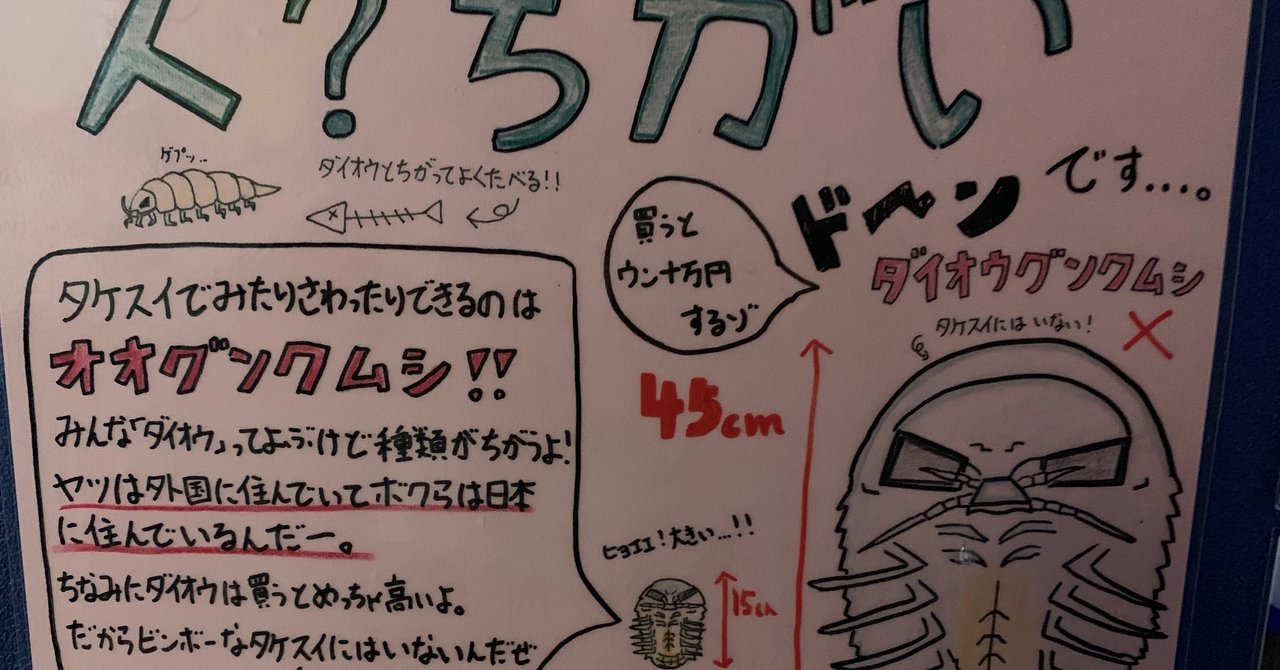 人?ちがい
です…。
ゲプッ..
ダイオウとちがってよくたべる!!
ドヘーン
買うと
ウン十万円
するゾ
ダイオウグソクムシ
タケスイにはいない!
タケスイでみたりさわったりできるのは
オオグソクムシ!!
みんな「ダイオウ」ってよぶけど種類がちがうよ!
ヤツは外国に住んでいてボクらは日本
に住んでいるんだー。
ちなみにダイオウは買うとめっちゃ高いよ。
だからビンボーなタケスイにはいないんだぜ
45cm
ヒョエエ!大きい…!!
15cm